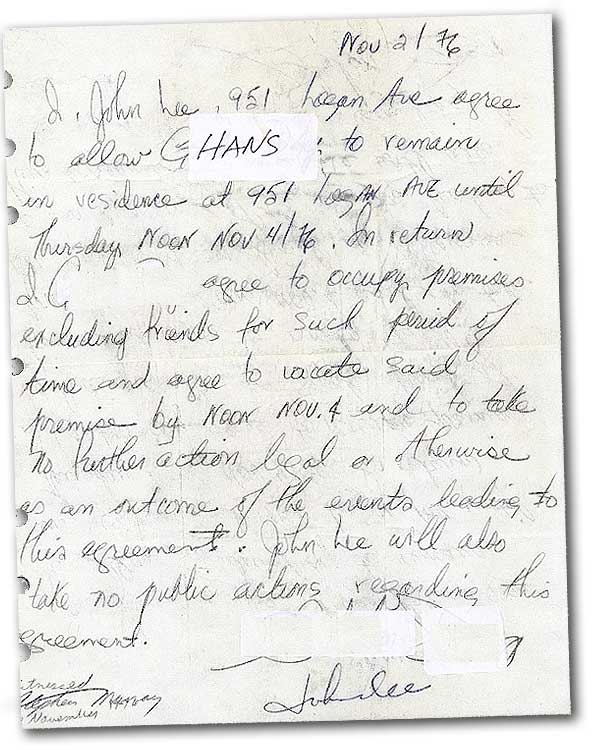 Nov 2/76
I, John Lee, 951 Logan Ave agree
to allow G HANS to remain
in residence at 951 Logan AVE until
Thursday NOON NOV 4/76. In return
I G agree to occupy premises
excluding friends for such period of
time and agree to vacate said
premise by NOON NOV. 4 and to take
no further action legal or otherwise
as an outcome of the events leading to
this agreement. John Lee will also
take no public actions regarding this
agreement.
John Lee
witnessed
Stephen
November